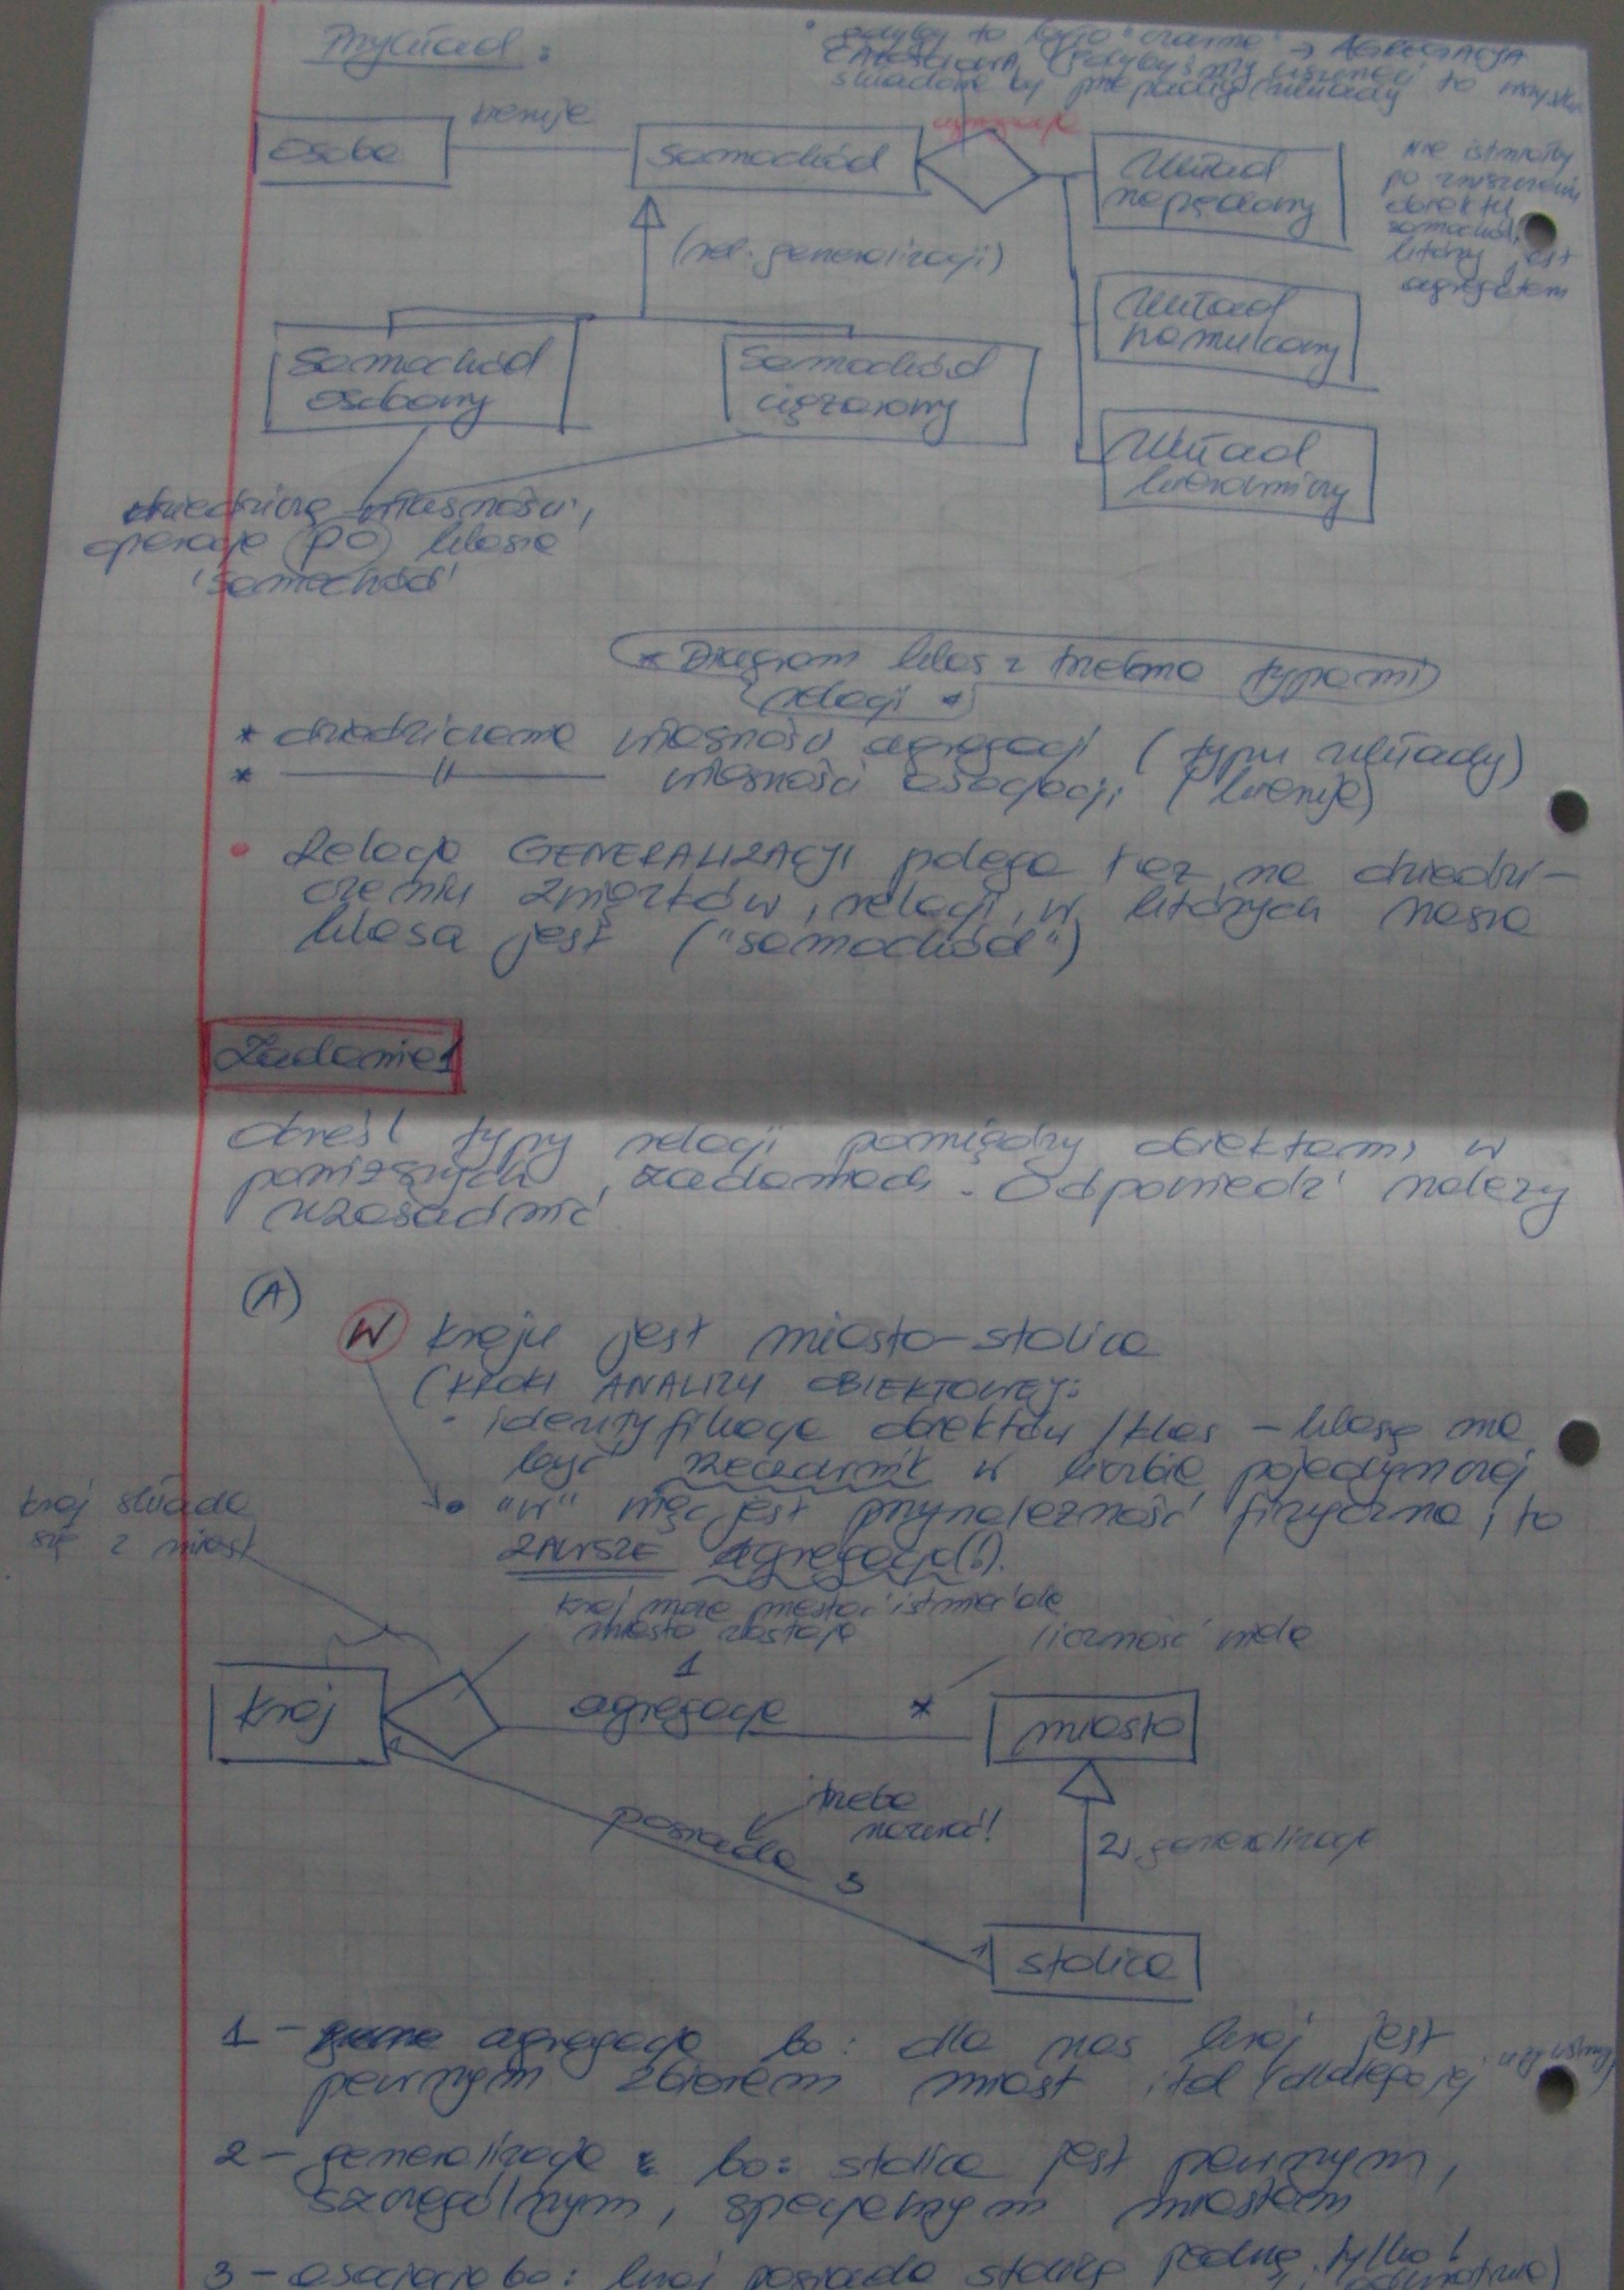 Przykład:
• gdyby to było "czarne" → AGREGACJA
CAŁOŚCIOWA, (gdybyśmy usunęli to wszystkie
składowe by przepadły układy
nie istniałby
po zniszczeniu
obiektu
samochód,
który jest
agregatem
osoba
kieruje
samochód
agregacja
układ
napędowy
(rel. generalizacji)
układ
hamulcowy
samochód
osobowy
samochód
ciężarowy
układ
kierowniczy
dziedziczą własności,
operacje po klasie
'samochód'
* Diagram klas z trzema typami
relacji *
* dziedziczenie własności agregacji (typu układy)
* —— " —— własności asocjacji (kieruje)
• Relacja GENERALIZACJI polega też na dziedzi-
czeniu związków, relacji, w których nasza
klasa jest ("samochód")
Zadanie 1
Określ typy relacji pomiędzy obiektami w
poniższych zadaniach. Odpowiedź należy
uzasadnić
(A)
W kraju jest miasto-stolica
(KROKI ANALIZY OBIEKTOWEJ:
• identyfikacja obiektów/klas - klasą ma
być rzeczownik w liczbie pojedynczej
• "w" więc jest przynależność fizyczna, to
ZAWSZE agregacja(!).
kraj składa
się z miast
kraj może przestać istnieć ale
miasta zostają
liczność wiele
kraj
1
agregacja
*
miasto
posiada
trzeba
nazwać!
3
2) generalizacja
1
stolica
1 - agregacja bo: dla nas kraj jest
pewnym zbiorem miast itd (dlatego jej
2 - generalizacja bo: stolica jest pewnym,
szczególnym, specjalnym miastem
3 - asocjacja bo: kraj posiada stolicę jedną tylko!